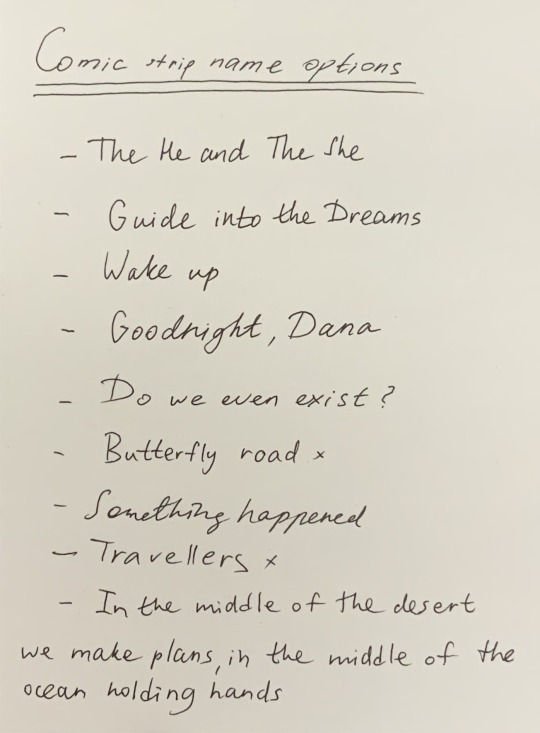 Comic strip name options
- The He and The She
- Guide into the Dreams
- Wake up
- Goodnight, Dana
- Do we even exist?
- Butterfly road x
- Something happened
- Travellers x
- In the middle of the desert
we make plans, in the middle of the
ocean holding hands